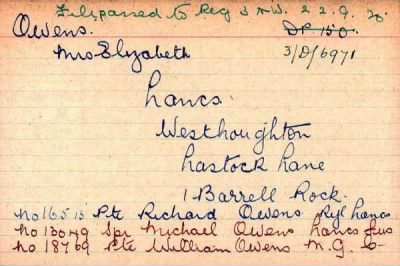 File passed to Reg 3 NW. 22.9.20.
Owens. DP 150.
Mrs Elizabeth 3/D/6971
Lancs
Westhoughton
Lastock Lane
1 Barrell Rock.
No 16515 Pte Richard Owens Ryl Lancs
No 13049 Spr Michael Owens Lancs Fus
No 18769 Pte William Owens M.G.C